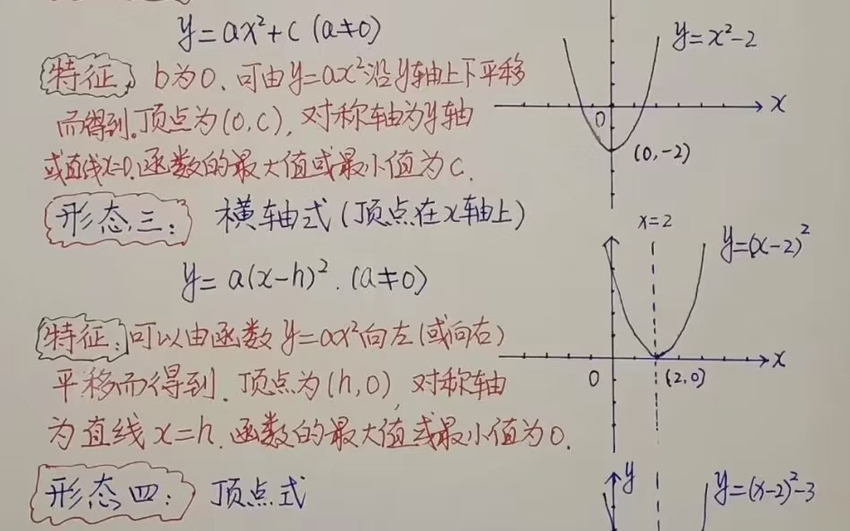 y=ax²+c (a≠0)
特征: b为0.可由y=ax²沿y轴上下平移
而得到.顶点为(0,c),对称轴为y轴
或直线x=0.函数的最大值或最小值为c.
y=x²-2
x
0
(0,-2)
形态三: 横轴式(顶点在x轴上)
y=a(x-h)².(a≠0)
x=2
y=(x-2)²
特征:可以由函数y=ax²向左(或向右)
平移而得到.顶点为(h,0),对称轴
为直线x=h.函数的最大值或最小值为0.
x
0
(2,0)
形态四: 顶点式
y
y=(x-2)²-3